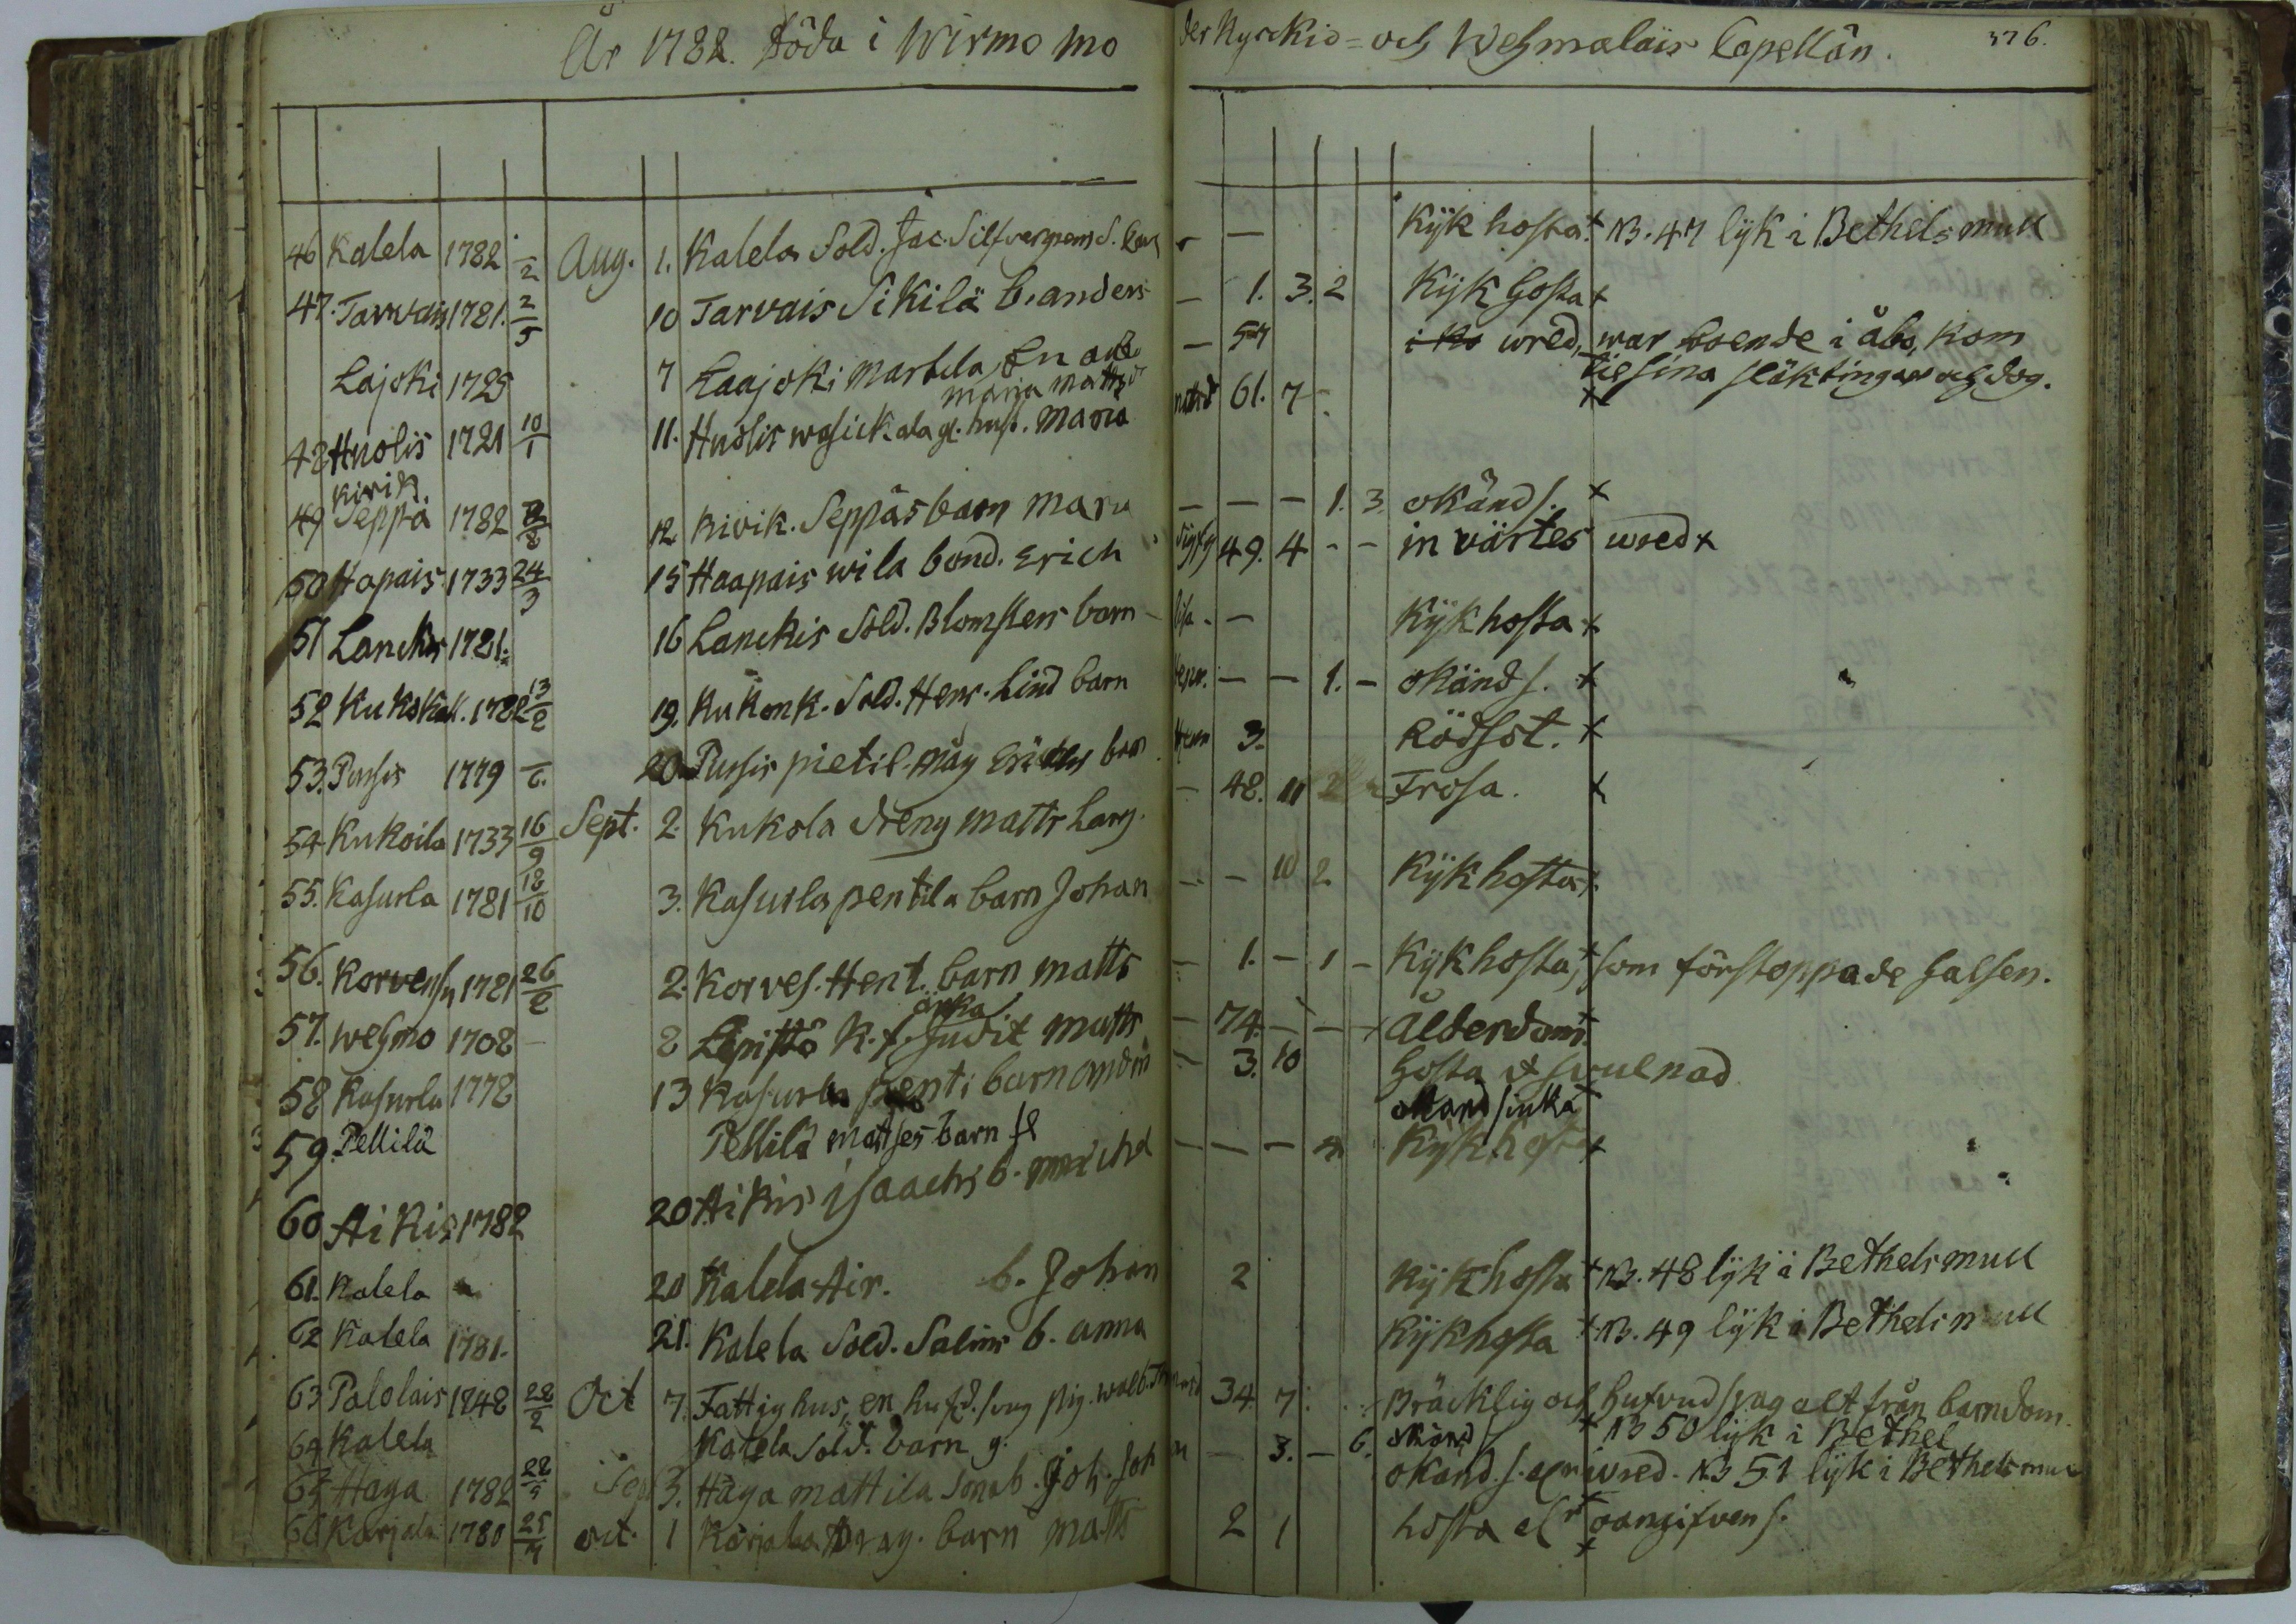 År 1782. Döda i Wirmo mo der Kyrckio= och Wehmalais Capellån. 376.
46 Kalela 1782 –/2 Aug. 1. Kalela Sold. Jac. Silfvergrens S. – Kÿk hosta. + NB. 47 lÿk i Bethels mull
47. Tarvais 1781. 2/5 10 Tarvais Sikilä b. anders – 1. 3. 2 Kÿk hosta +
Lajoki 1725 7 Laajoki Martela En – 57 wred, war boende i åbo, kom
maria matts til sina släktingar och dog.
48 Huolis 1721 10/1 11. Huolis wasick.ala gl. hust. Maria 61. 7 – +
Kivik.
49 Seppä 1782 12 Kivik. Seppäs barn Maria – – – 1. 3. okänd s. +
50 Hapais 1733 24/3 15 Haapais wila bond. Erich 49. 4 - - in värtes wred +
51 Lanckis 1781. 16 Lanckis Sold. Blomsters barn lisa - – Kÿkhosta +
52 Kukokall. 1782 13/2 19. Kukonk. Sold. Henr. Lind barn Henr. – – 1. – okänd s. +
53. Pussis 1779 –/6. 20. Pussis pietil. måg Erichs barn Henr 3. Rödsot. +
54 Kukoila 1733 16/9 Sept. 2. Kukola dreng matts Larss. – 48. 11 Frosa. +
55. Kasurla 1781 18/10 3. Kasurla pentila barn Johan – – 10 2 Kÿk hosta +
56. Korvensu 1781 26/2 2. Korves. Hent. barn matts – 1. – 1 – Kÿk hosta, + som förstoppade halsen.
änka
57. Wehmo 1708 – 8 Lepistö K. f. Judit matts – 74. – – – Ålderdom +
58 Kasurla 1778 13 Kasurla penti barn andrs – 3. 10 hosta & svulnad
59. Pellilä Pellilä matses barn fl okand siuka +
60 Aikis 1782 20 Aikis isaachs b. michel – – – 4. Kÿkhosta +
61. Kalela 20 Kalela Air. b. Johan 2 Kÿkhosta + NB. 48 lÿk i Bethels mull
62 Kalela 1781. 21. Kalela Sold. Salins b. anna Kÿkhosta + NB. 49 lÿk i Bethels mull
63 Palolais 1748 28/2 Oct 7. Fattighus, en hufd. svag pig. walb. 34 7. Bräcklig och hufvud svag alt från barndom.
64 Kalela Kalela Sold. barn g. okänd s + NB 50 lÿk i Bethel
65 Haga 1782 28/5 Sep 3. Haga mattila sonab. Joh. Joh n – 3. – 6. okand. s. elr wred. NB 51 lÿk i Bethels mull
66 Karjala 1780 25/4 oct. 1 Karjala Drag. barn matts 2 1 hosta elr oangifven s. +